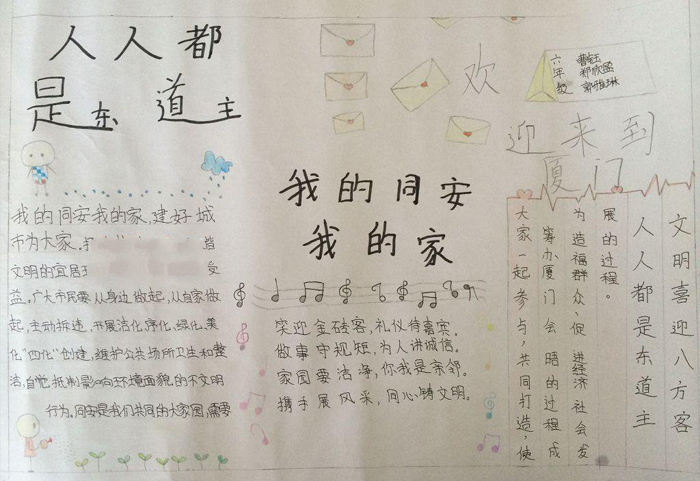 人人都
是东道主
欢
迎来到
厦门
六年级
我的同安
我的家
我的同安我的家,建好城
市为大家。
文明的宜居
益。广大市民要从身边做起,从自家做
起,主动拆违,开展洁化、序化、绿化、美
化“四化”创建,维护公共场所卫生和整
洁,自觉抵制影响环境面貌的不文明
行为。同安是我们共同的大家园,需要
笑迎金砖客,礼仪待嘉宾。
做事守规矩,为人讲诚信。
家园要洁净,你我是亲邻。
携手展风采,同心铸文明。
文明喜迎八方客
人人都是东道主
展的过程。
为造福群众、促进经济社会发
筹办厦门会晤的过程成
大家一起参与,共同打造,使